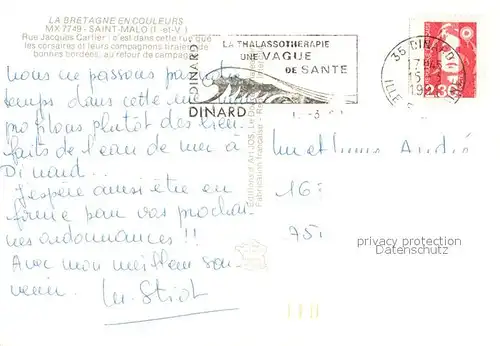 LA BRETAGNE EN COULEURS
MX 7749 - SAINT-MALO (I.-et-V.)
Rue Jacques Cartier : c'est dans cette rue que
les corsaires et leurs compagnons tiraient de
bonnes bordées, au retour de campagne
nous ne passons pas de
temps dans cette rue mais
profitons plutôt des bien-
faits de l'eau de mer à
Dinard...
J'espère ainsi être en
forme pour vos prochai-
nes ordonnances !!
Avec mon meilleur sou-
venir.
DINARD
DINARD
LA THALASSOTHERAPIE
UNE VAGUE
DE SANTE
DINARD
35 DINARD
17H
15-3
19
ILLE
2,30
Editions d'Art JOS Le D
Fabrication française
M et Mme André
16
75
privacy protection
Datenschutz